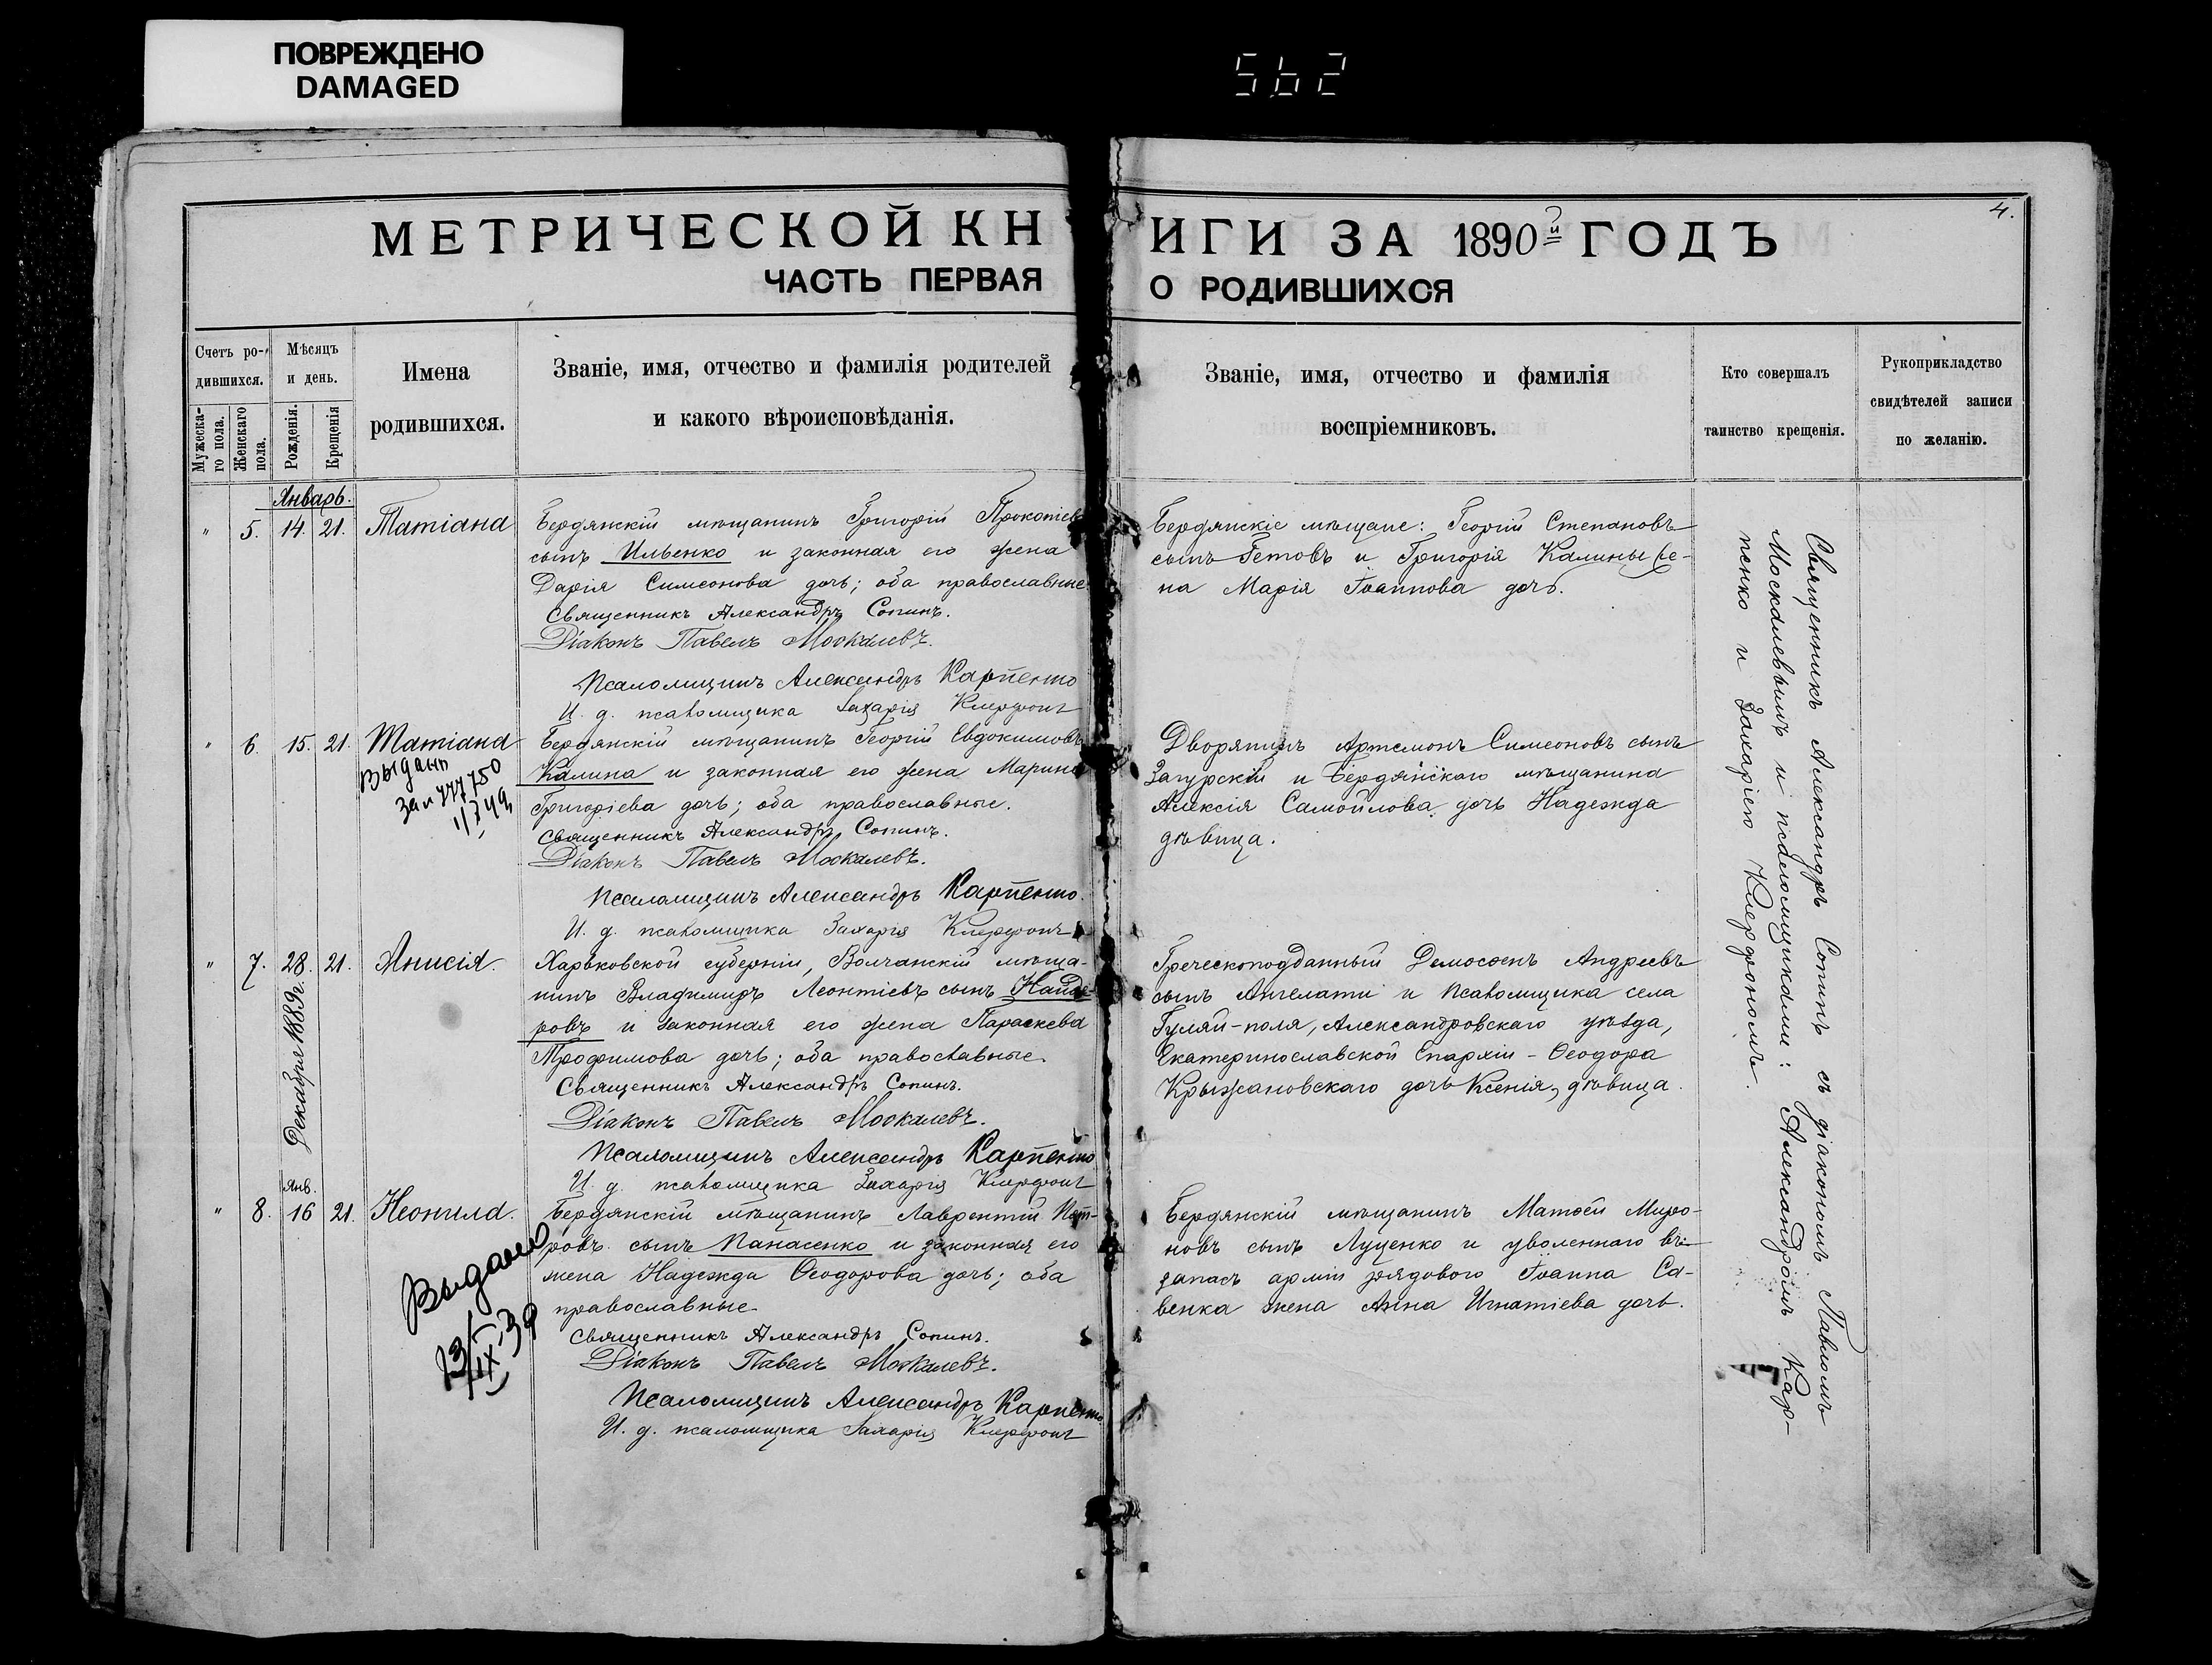 ПОВРЕЖДЕНО
DAMAGED
562
4.
МЕТРИЧЕСКОЙ КН
ИГИ ЗА 1890й ГОДЪ
ЧАСТЬ ПЕРВАЯ
О РОДИВШИХСЯ
Счетъ ро-
дившихся.
Мужеска-
го пола.
Женскаго
пола.
Мѣсяцъ
и день.
Рожденія.
Крещенія
Имена
родившихся.
Званіе, имя, отчество и фамилія родителей
и какого вѣроисповѣданія.
Званіе, имя, отчество и фамилія
воспріемниковъ.
Кто совершалъ
таинство крещенія.
Рукоприкладство
свидѣтелей записи
по желанію.
Январь.
" 5. 14. 21. Татіана
Бердянскій мѣщанинъ Григорій Прокопіев
сынъ Ильенко и законная его жена
Дарія Симеонова дочь; оба православные
Священникъ Александръ Сопинъ.
Діаконъ Павелъ Москалевъ.
Псаломщикъ Александръ Карпенко
И. д. псаломщика Захарія
Бердянскіе мѣщане: Георгій Степановъ
сынъ Гетовъ и Григорія Калины же-
на Марія Іоаннова дочь.
" 6. 15. 21. Татіана
Выдано
Бердянскій мѣщанинъ Георгій Евдокимовъ
Калина и законная его жена Марина
Григоріева дочь; оба православные.
Священникъ Александръ Сопинъ.
Діаконъ Павелъ Москалевъ.
Псаломщикъ Александръ Карпенко.
И. д. псаломщика Захарія
Дворянинъ Артемонъ Симеоновъ сынъ
Загурскій и Бердянскаго мѣщанина
Алексія Самойлова дочь Надежда
дѣвица.
" 7. 28. 21. Анисія.
Декабря 1889г.
Харьковской губерніи, Волчанскій мѣща-
нинъ Владимиръ Леонтіевъ сынъ
ровъ и законная его жена Параскева
Трофимова дочь; оба православные.
Священникъ Александръ Сопинъ.
Діаконъ Павелъ Москалевъ.
Псаломщикъ Александръ Карпенко
И. д. псаломщика Захарія
Греческоподданный Демосѳенъ Андреевъ
сынъ Ангелати и псаломщика села
Гуляй-поля, Александровскаго уѣзда,
Екатеринославской Епархіи - Ѳеодора
Крыжановскаго дочь Ксенія, дѣвица.
Янв.
" 8. 16 21. Неонила.
Выдано
13/IX 39
Бердянскій мѣщанинъ Лаврентій Пет-
ровъ сынъ Панасенко и законная его
жена Надежда Ѳеодорова дочь; оба
православные
Священникъ Александръ Сопинъ.
Діаконъ Павелъ Москалевъ.
Псаломщикъ Александръ Карпенко
И. д. псаломщика Захарія
Бердянскій мѣщанинъ Матѳей Миро-
новъ сынъ Луценко и уволеннаго въ
запасъ арміи рядового Іоанна Са-
венка жена Анна Игнатіева дочь.
Священникъ Александръ Сопинъ съ діакономъ Павломъ
Москалевымъ и псаломщиками: Александромъ Кар-
пенко и Захаріею